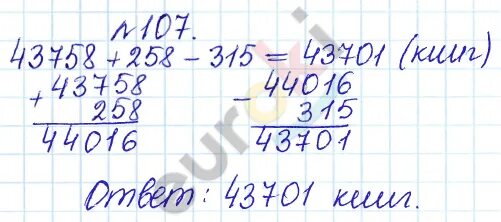 №107.
43758 + 258 - 315 = 43701 (книг)
+ 43758
258
44016
- 44016
315
43701
Ответ: 43701 книг.